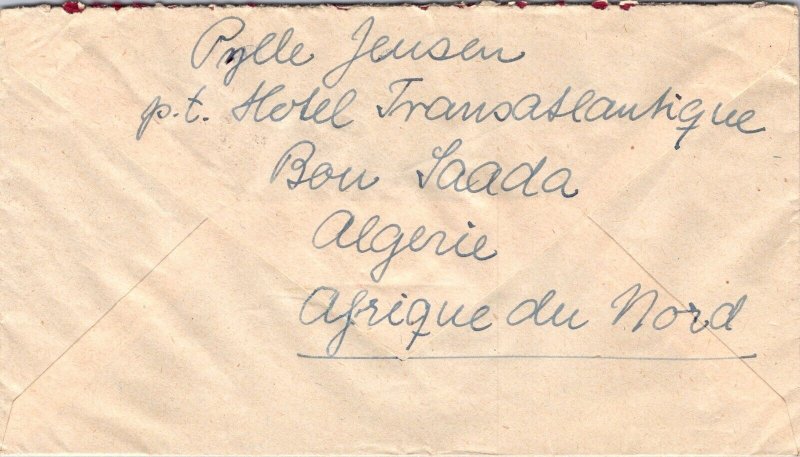 Pylle Jensen
p.t. Hotel Transatlantique
Bou Saada
Algerie
Afrique du Nord